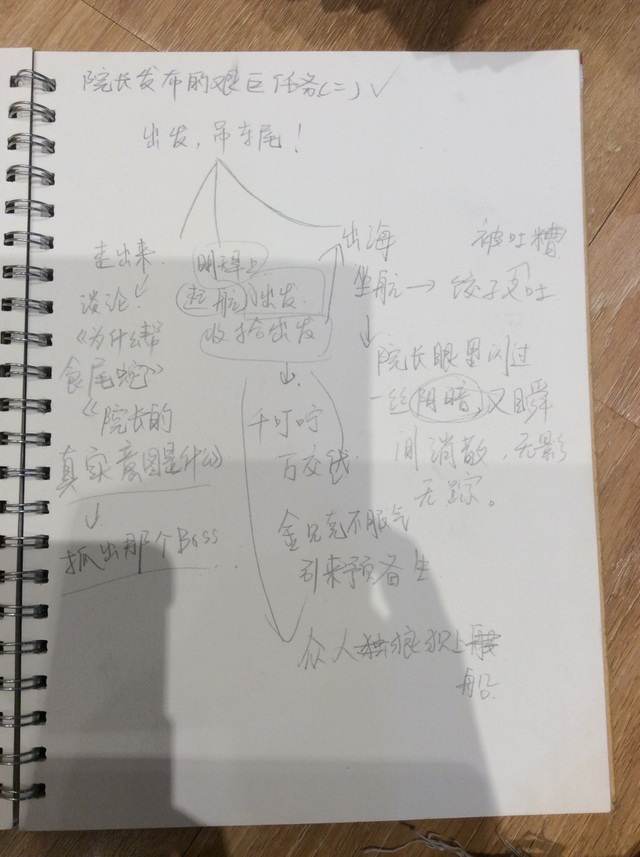 院长发布的艰巨任务(二) ✓
出发,吊车尾!
走出来
谈论:
《为什么帮
食尾蛇》
《院长的
真实意图是什么》
↓
抓出那个Boss
明译上
起航 出发
收拾出发
↓
千叮咛
万交代
金贝克不服气
引来预备生
众人狼狈上
船
出海 被吐槽
坐航→饺子
↓
院长眼里闪过
一丝阴暗,又瞬
间消散,无影
无踪。